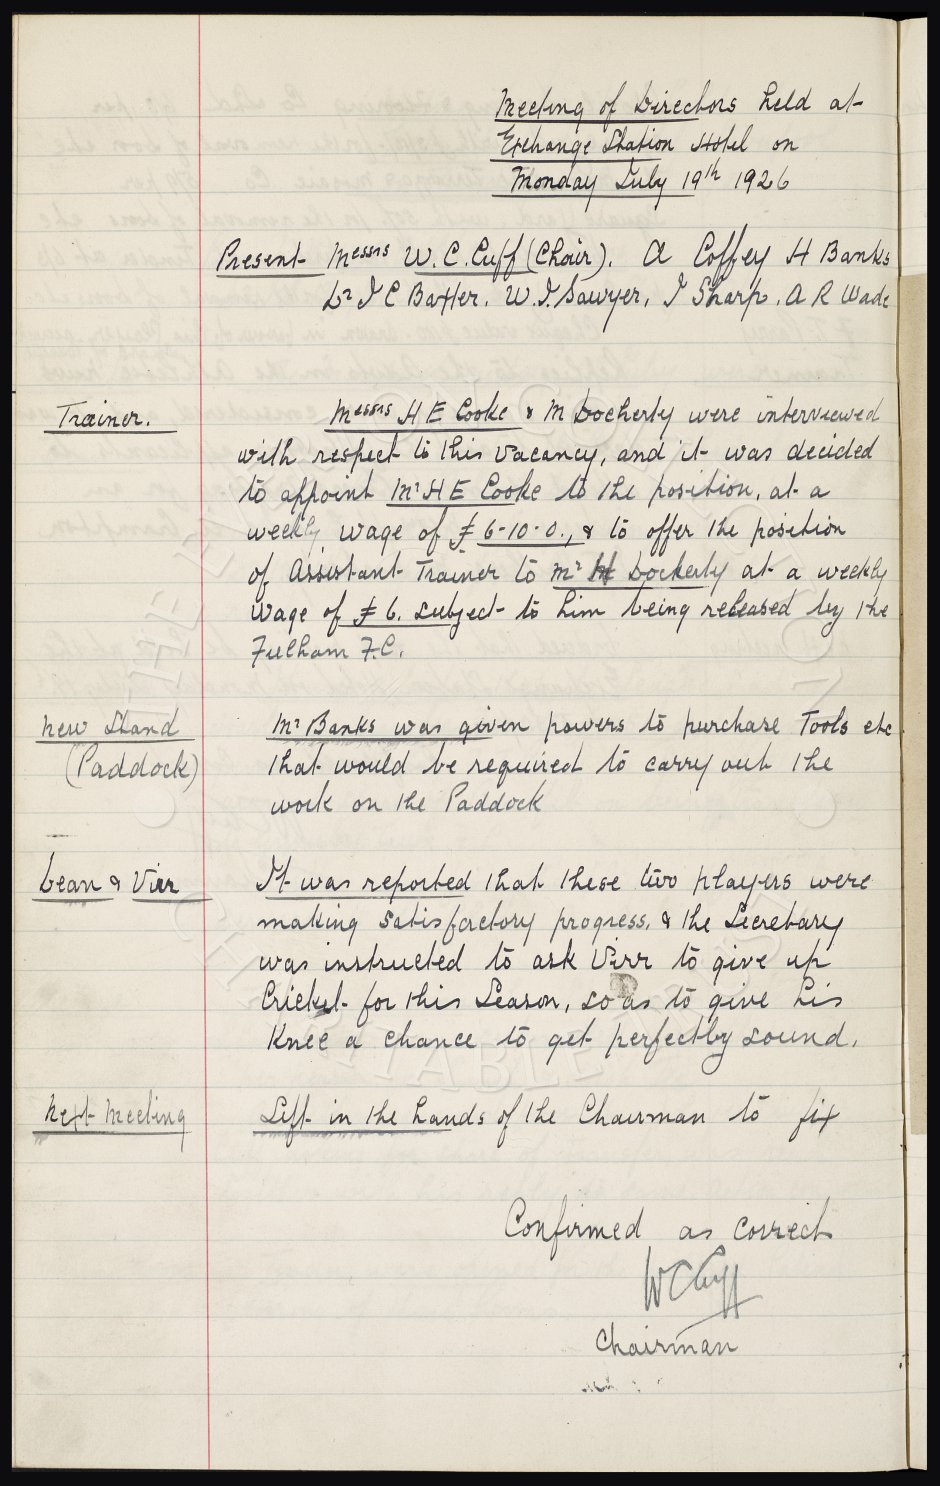 Meeting of Directors held at
Exchange Station Hotel on
Monday July 19th 1926
Present Messrs W. C. Cuff (Chair). A Coffey H Banks
Dr J C Baxter. W. J. Sawyer, J Sharp. A R Wade
Trainer. Messrs H E Cooke & M Docherty were interviewed
with respect to this vacancy, and it was decided
to appoint Mr H E Cooke to the position, at a
weekly wage of £6-10-0., & to offer the position
of Assistant Trainer to Mr M Dockerty at a weekly
wage of £6. subject to him being released by the
Fulham F.C.
New Stand Mr Banks was given powers to purchase Tools etc
(Paddock) that would be required to carry out the
work on the Paddock
Dean & Virr It was reported that these two players were
making satisfactory progress. & the Secretary
was instructed to ask Virr to give up
Cricket for this Season, so as to give his
Knee a chance to get perfectly sound.
Next Meeting Left in the hands of the Chairman to fix
Confirmed as correct
W C Cuff
Chairman